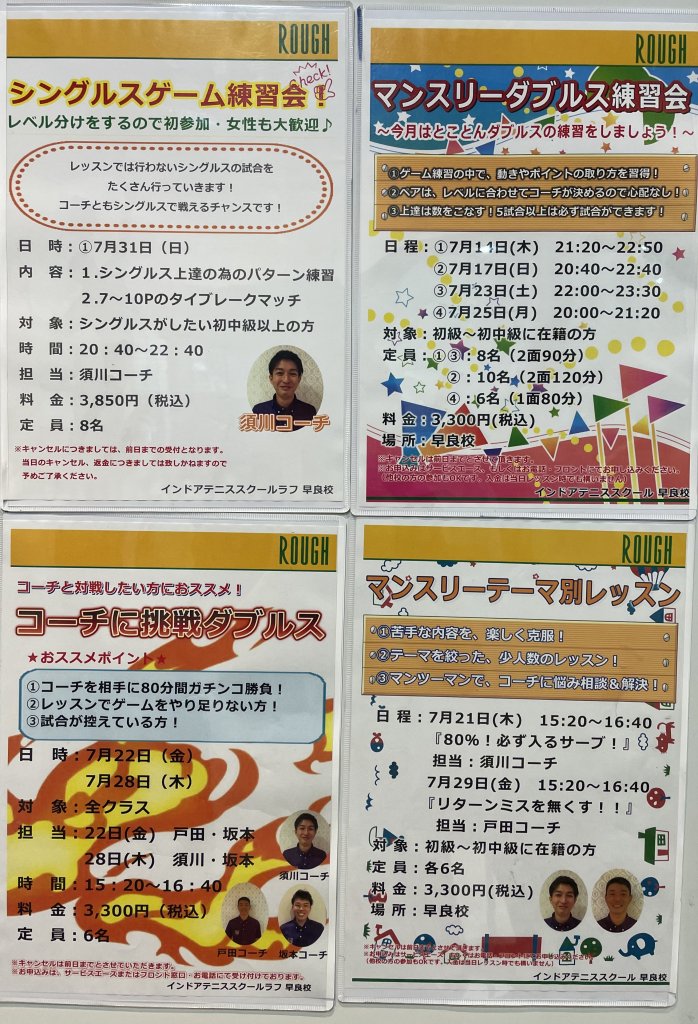 ROUGH
シングルスゲーム練習会！
Check!
レベル分けをするので初参加・女性も大歓迎♪
レッスンでは行わないシングルスの試合を
たくさん行っていきます！
コーチともシングルスで戦えるチャンスです！
日　時：①7月31日（日）
内　容：1.シングルス上達の為のパターン練習
2.7～10Pのタイブレークマッチ
対　象：シングルスがしたい初中級以上の方
時　間：20：40～22：40
担　当：須川コーチ
料　金：3,850円（税込）
定　員：8名
須川コーチ
※キャンセルにつきましては、前日までの受付となります。
当日のキャンセル、返金につきましては致しかねますので
予めご了承ください。
インドアテニススクールラフ 早良校
ROUGH
マンスリーダブルス練習会
～今月はとことんダブルスの練習をしましょう！～
①ゲーム練習の中で、動きやポイントの取り方を習得！
②ペアは、レベルに合わせてコーチが決めるので心配なし！
③上達は数をこなす！5試合以上は必ず試合ができます！
日 程：①7月14日(木)　21:20～22:50
②7月17日(日)　20:40～22:40
③7月23日(土)　22:00～23:30
④7月25日(月)　20:00～21:20
対 象：初級～初中級に在籍の方
定 員：①③：8名（2面90分）
②：10名（2面120分）
④：6名（1面80分）
料 金：3,300円(税込)
場 所：早良校
※キャンセルは前日までとさせて頂きます。
※お申込みはサービスエース、もしくはお電話・フロントまでお申し込みください。
(他校の方の参加もOKです。入金は当日レッスン時でも構いません)
インドアテニススクール 早良校
ROUGH
コーチと対戦したい方におススメ！
コーチに挑戦ダブルス
★おススメポイント★
①コーチを相手に80分間ガチンコ勝負！
②レッスンでゲームをやり足りない方！
③試合が控えている方！
日　時：7月22日（金）
7月28日（木）
対　象：全クラス
担　当：22日(金)　戸田・坂本
28日(木)　須川・坂本
時　間：15：20～16：40
料　金：3,300円（税込）
定　員：6名
須川コーチ
戸田コーチ　坂本コーチ
※キャンセルは前日までとさせていただきます。
※お申込みは、サービスエースまたはフロント窓口・お電話にて受け付けております。
インドアテニススクールラフ 早良校
ROUGH
マンスリーテーマ別レッスン
①苦手な内容を、楽しく克服！
②テーマを絞った、少人数のレッスン！
③マンツーマンで、コーチに悩み相談＆解決！
日 程：7月21日(木)　15:20～16:40
『80%！必ず入るサーブ！』
担当：須川コーチ
7月29日(金)　15:20～16:40
『リターンミスを無くす！！』
担当：戸田コーチ
対 象：初級～初中級に在籍の方
定 員：各6名
料 金：3,300円(税込)
場 所：早良校
※キャンセルは前日までとさせて頂きます。
(他校の方の参加もOKです。入金は当日レッスン時でも構いません)
インドアテニススクール 早良校